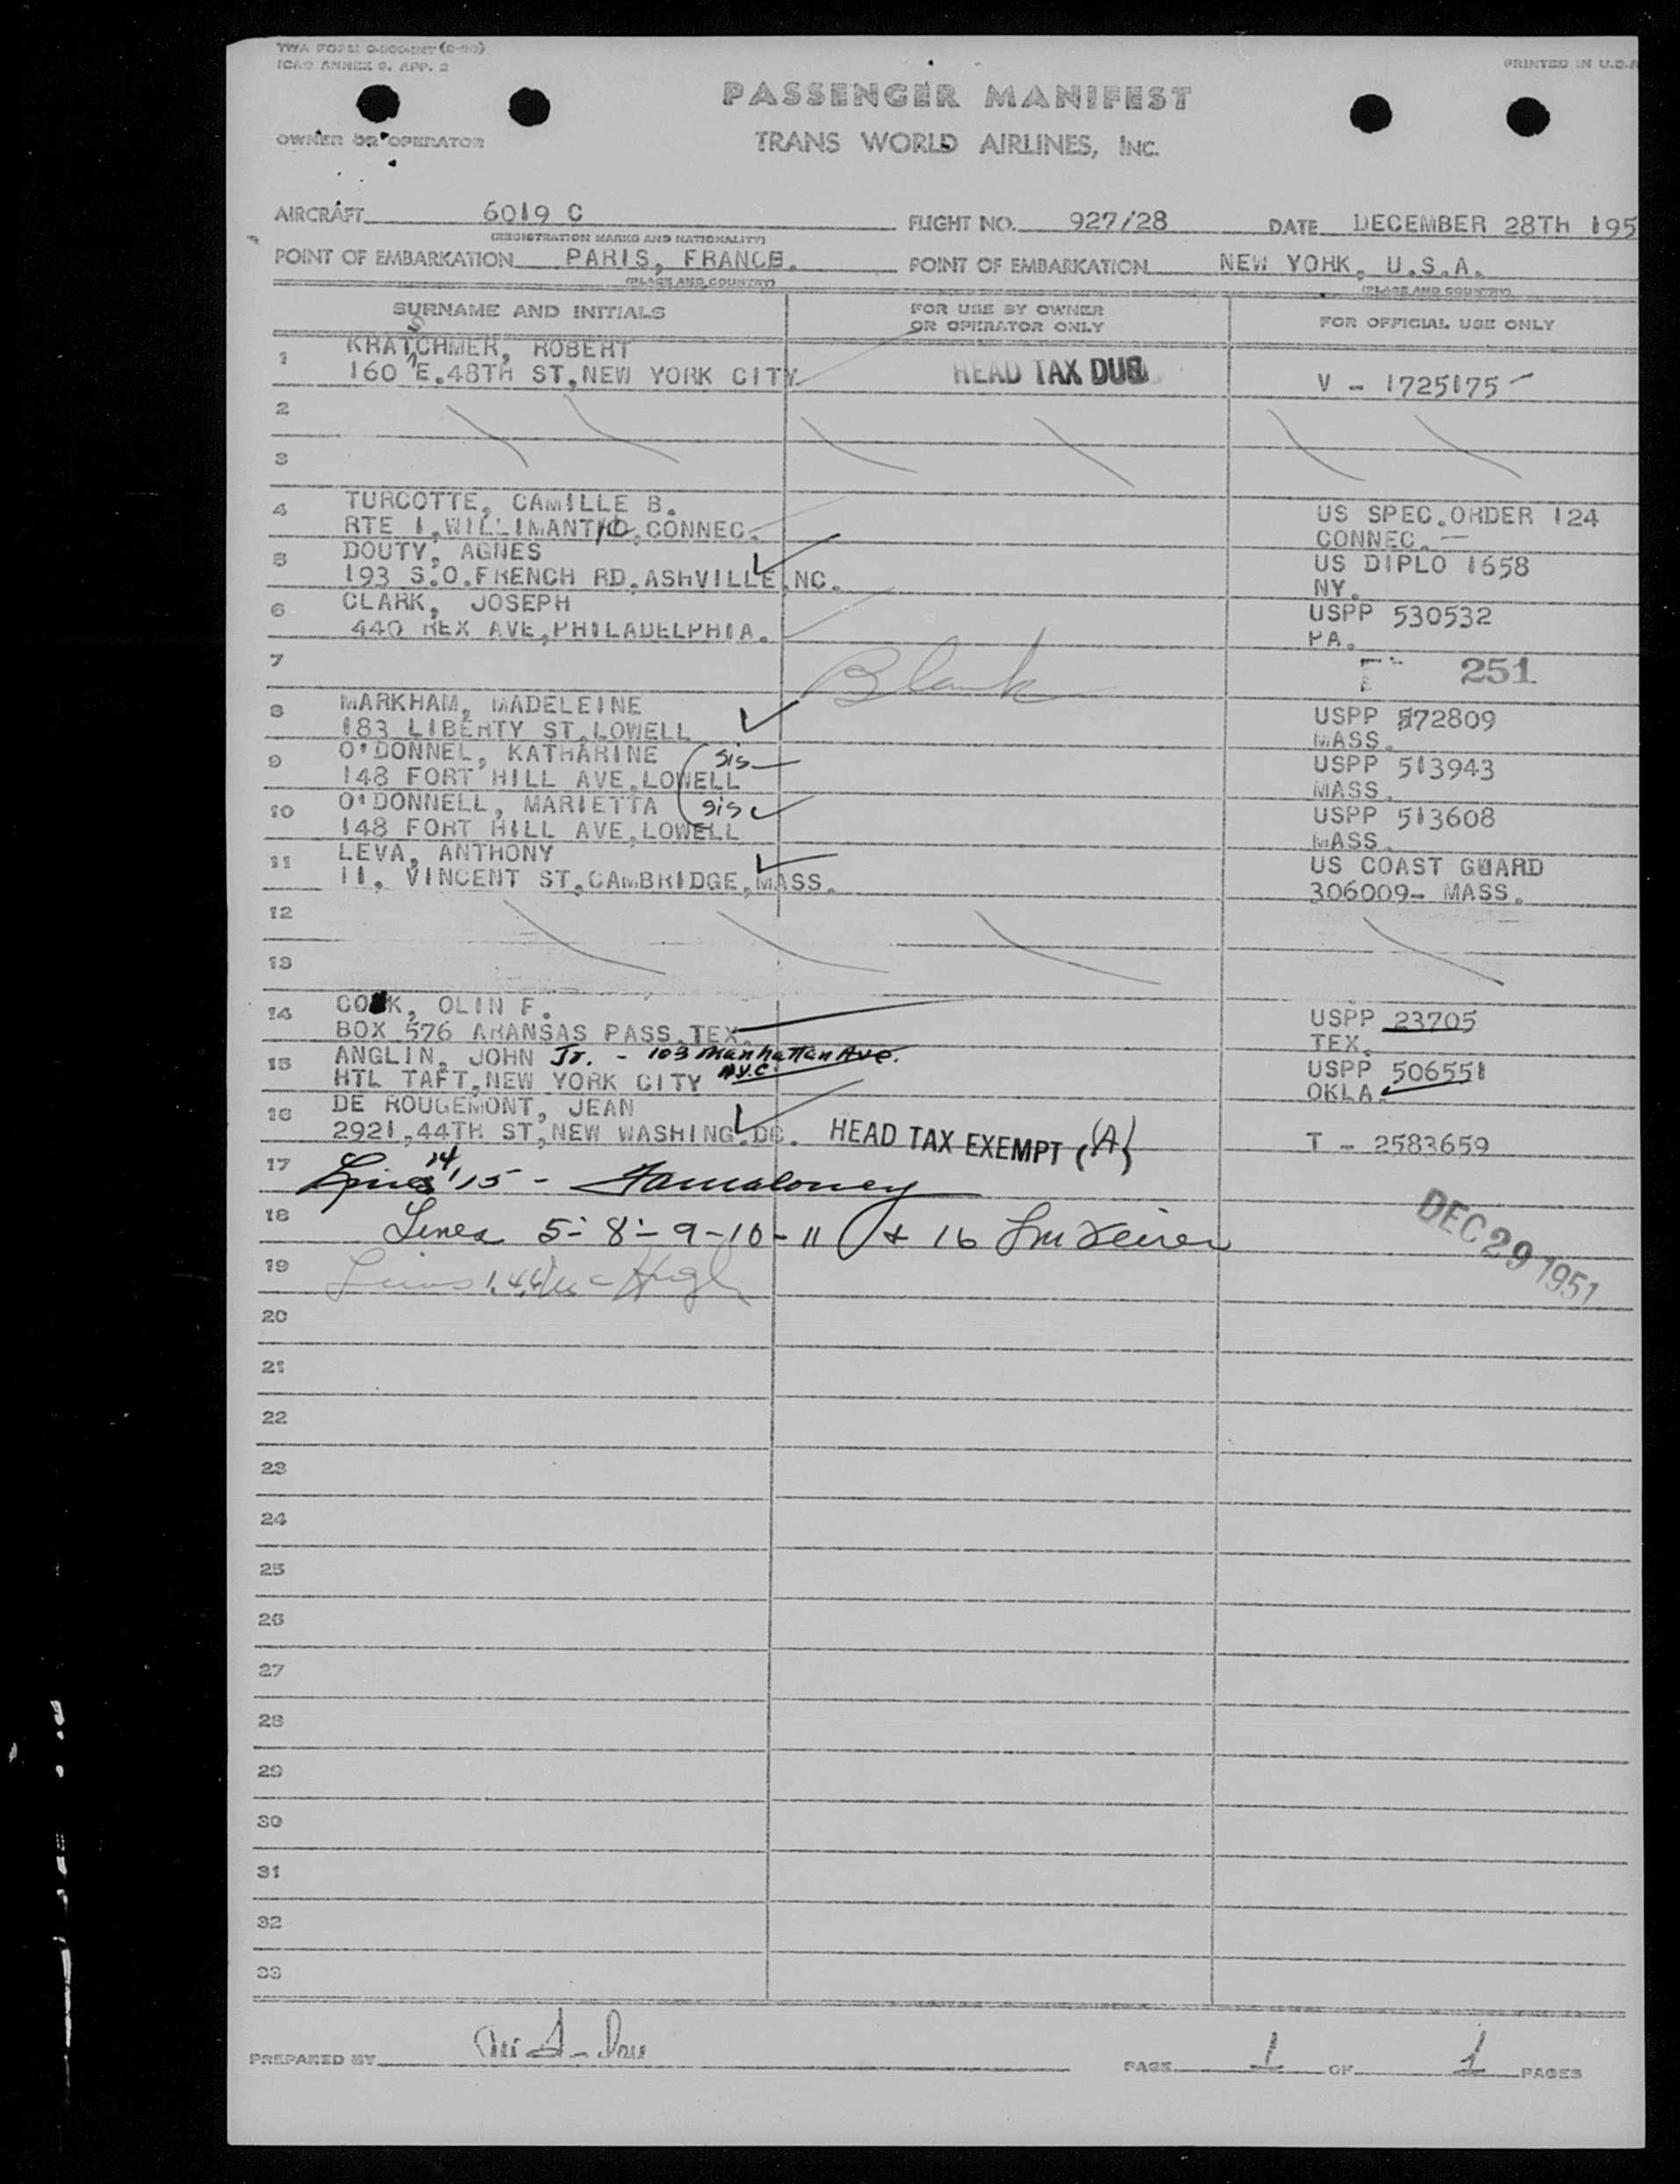 ICAO ANNEX 9. APP. 2
PRINTED IN U.S.A
PASSENGER MANIFEST
OWNER OR OPERATOR
TRANS WORLD AIRLINES, INC.
AIRCRAFT 6019 C FLIGHT NO. 927/28 DATE DECEMBER 28TH 195
(REGISTRATION MARKS AND NATIONALITY)
POINT OF EMBARKATION PARIS, FRANCE. POINT OF EMBARKATION NEW YORK, U.S.A.
(PLACE AND COUNTRY) (PLACE AND COUNTRY)
SURNAME AND INITIALS FOR USE BY OWNER OR OPERATOR ONLY FOR OFFICIAL USE ONLY
S
1 KRATCHMER, ROBERT
160 E.48TH ST,NEW YORK CITY HEAD TAX DUE V - 1725175
2
3
4 TURCOTTE, CAMILLE B. US SPEC.ORDER 124
RTE 1,WILLIMANTIC,CONNEC. CONNEC.
5 DOUTY, AGNES US DIPLO 1658
193 S.O.FRENCH RD,ASHVILLE,NC. NY.
6 CLARK, JOSEPH USPP 530532
440 REX AVE,PHILADELPHIA. PA.
7 Blank 251
8 MARKHAM, MADELEINE USPP 572809
183 LIBERTY ST,LOWELL MASS.
9 O'DONNEL, KATHARINE sis USPP 513943
148 FORT HILL AVE,LOWELL MASS.
10 O'DONNELL, MARIETTA sis USPP 513608
148 FORT HILL AVE,LOWELL MASS.
11 LEVA, ANTHONY US COAST GUARD
11, VINCENT ST,CAMBRIDGE,MASS. 306009- MASS.
12
13
14 COOK, OLIN F. USPP 23705
BOX 576 ARANSAS PASS,TEX. TEX.
15 ANGLIN, JOHN Jr. - 103 Manhattan Ave. USPP 506551
HTL TAFT,NEW YORK CITY N.Y.C. OKLA.
16 DE ROUGEMONT, JEAN
2921,44TH ST,NEW WASHING.DC. HEAD TAX EXEMPT (A) T - 2583659
17 Lines 14,15 -
18 Lines 5-8-9-10-11 & 16
DEC 29 1951
19 Lines
20
21
22
23
24
25
26
27
28
29
30
31
32
33
PREPARED BY PAGE 1 OF 1 PAGES